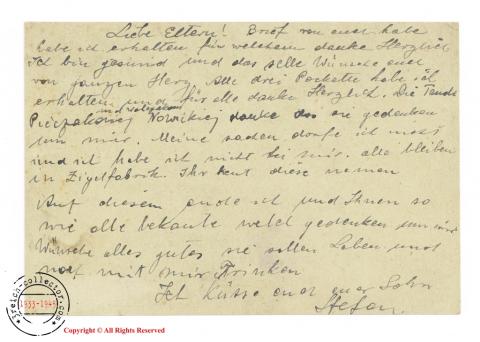 Liebe Eltern! Brief von euch habe
habe ich erhalten für welchem danke Herzlich
Ich bin gesund und das selle Wünsche euch
von ganzen Herz. Alle drei Packette habe ich
erhalten und für alle danke Herzlich. Die Tande
und
Nowickiej danke das sie gedenken
um mir. Meine sachen dorfe ich
und ich habe ich nicht bei mir. alle bleiben
in Zigelfabrik. Ihr diese
Auf diesem ende ich und Ihnen so
wie alle bekante welch gedenken um mir
Wünsche alles gutes sie sollen Leben und
noch mit mir Trinken
Ich Küsse euch euer Sohn
Stefan.
3reich-collector.com
1933-1945
Copyright © All Rights Reserved